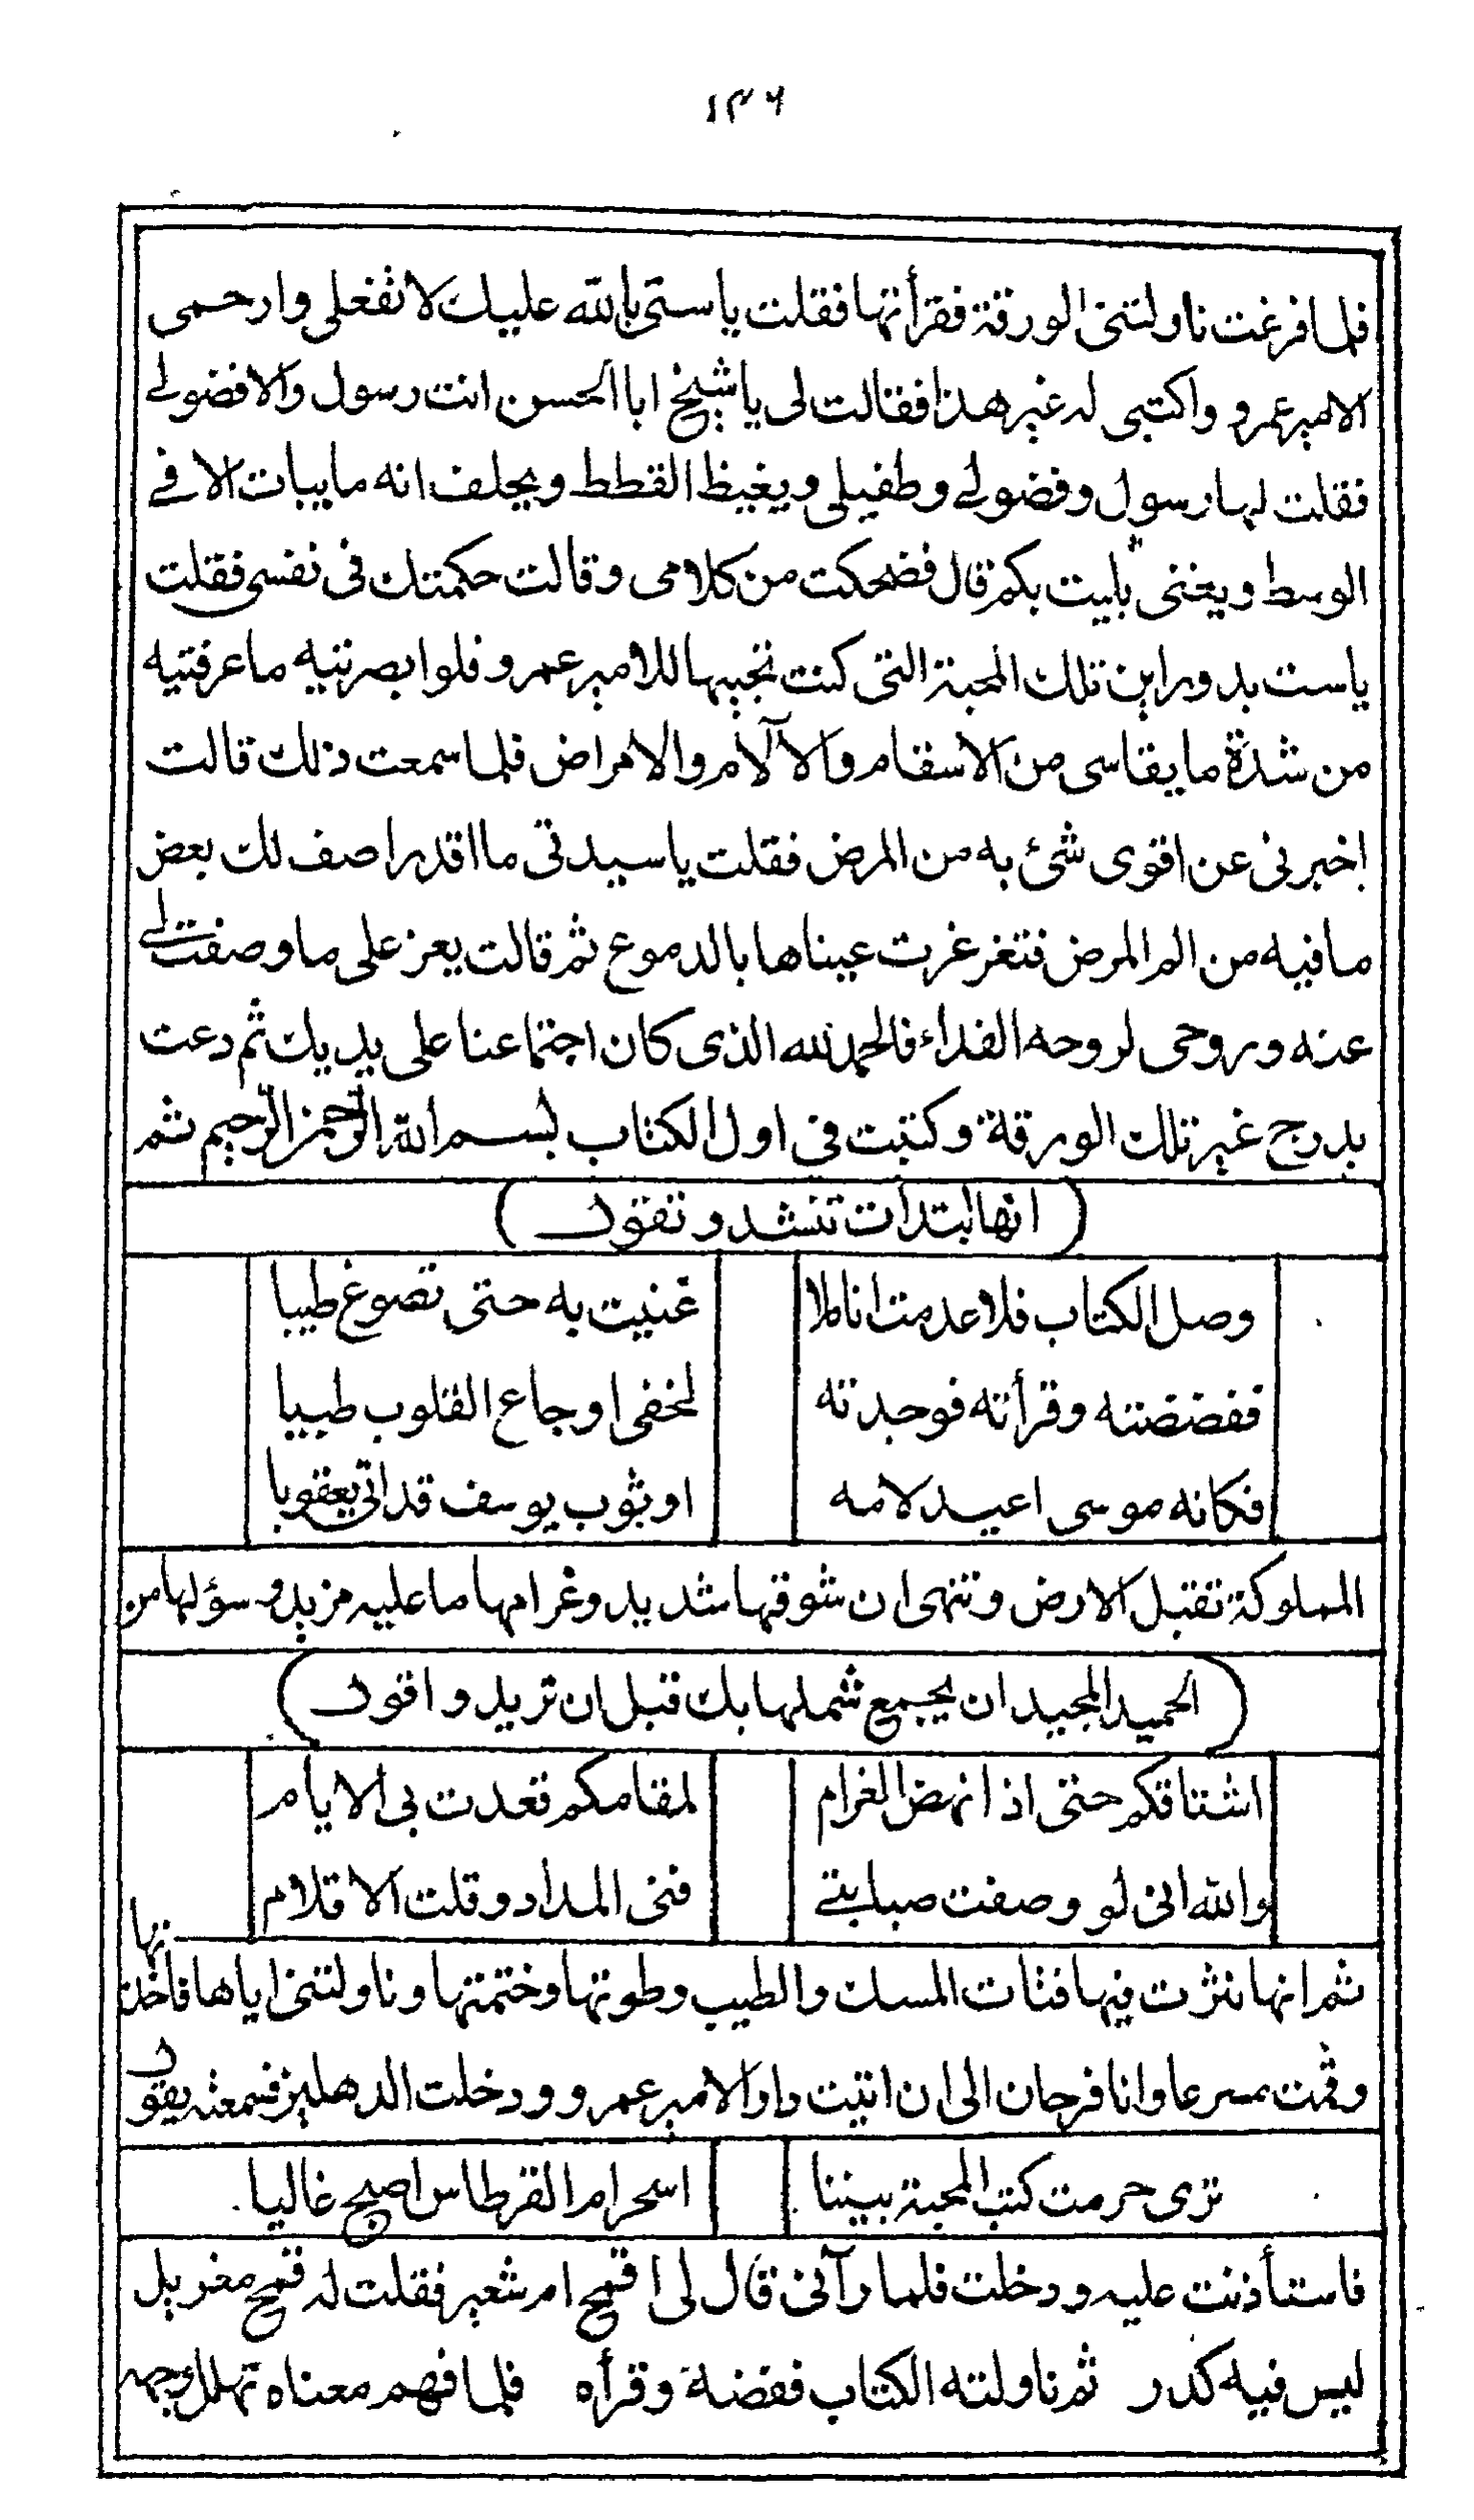 ١٣٦
فلما فرغت ناولتنى الورقة فقرأتها فقلت ياستى بالله عليك لا تفعلى وارحمى
الامير عمرو واكتبى له غير هذا فقالت لى ياشيخ ابا الحسن انت رسول والا فضولے
فقلت لها رسول وفضولے وطفيلى ويغيظ القطط ويحلف انه مايبات الا فے
الوسط ويغنى بليت بكم قال فضحكت من كلامى وقالت حكمتك فى نفسى فقلت
ياست بدور اين تلك المحبة التى كنت تحبيها للامير عمرو فلوا بصرتيه ماعرفتيه
من شدة مايقاسى من الاسقام والآلام والامراض فلما سمعت ذلك قالت
اخبرنى عن اقوى شئ به من المرض فقلت ياسيدتى ما اقدر اصف لك بعض
مافيه من الم المرض فتغرغرت عيناها بالدموع ثم قالت يعز على ماوصفت لے
عنه وروحى لروحه الفداء فالحمد لله الذى كان اجتماعنا على يديك ثم دعت
بدرج غير تلك الورقة وكتبت فى اول الكتاب بسم الله الرحمن الرحيم ثم
(انها ابتدأت تنشد وتقول)
وصل الكتاب فلا عدمت اناملا غنيت به حتى تضوغ طيبا
ففضضته وقرأته فوجدته لخفى اوجاع القلوب طبيبا
فكانه موسى اعيد لامه او ثوب يوسف قد اتى يعقوبا
المملوكة تقبل الارض وتنهى ان شوقها شديد وغرامها ما عليه مزيد وسؤلها من
(الحميد المجيد ان يجمع شملها بك قبل ان تريد واقول)
اشتاقكم حتى اذا نهض الغرام لمقامكم قعدت بى الايام
والله انى لو وصفت صبابتے فنى المداد وقلت الاقلام
ثم انها نثرت فيها فتات المسك والطيب وطوتها وختمتها وناولتنى اياها فاخذتها
وقمت مسرعا وانا فرحان الى ان اتيت دار الامير عمرو ودخلت الدهليز فسمعته يقول
ترى حرمت كتب المحبة بيننا اسحر ام القرطاس اصبح غاليا
فاستأذنت عليه ودخلت فلما رآنى قال لى اقمح ام شعير فقلت له قمح مغربل
ليس فيه كدر ثم ناولته الكتاب ففضه وقرأه فلما فهم معناه تهلل وجهه